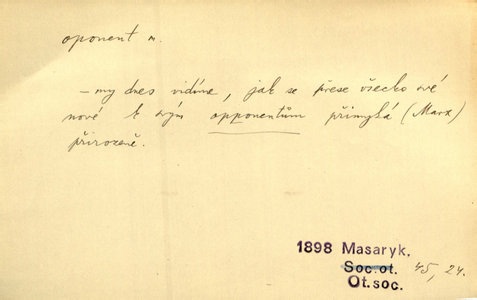 oponent m.
– my dnes vidíme, jak se přese všecko své
nové k svým opponentům přimyká (Marx)
přirozeně.
1898 Masaryk.
Soc. ot. 45, 24.
Ot. soc.